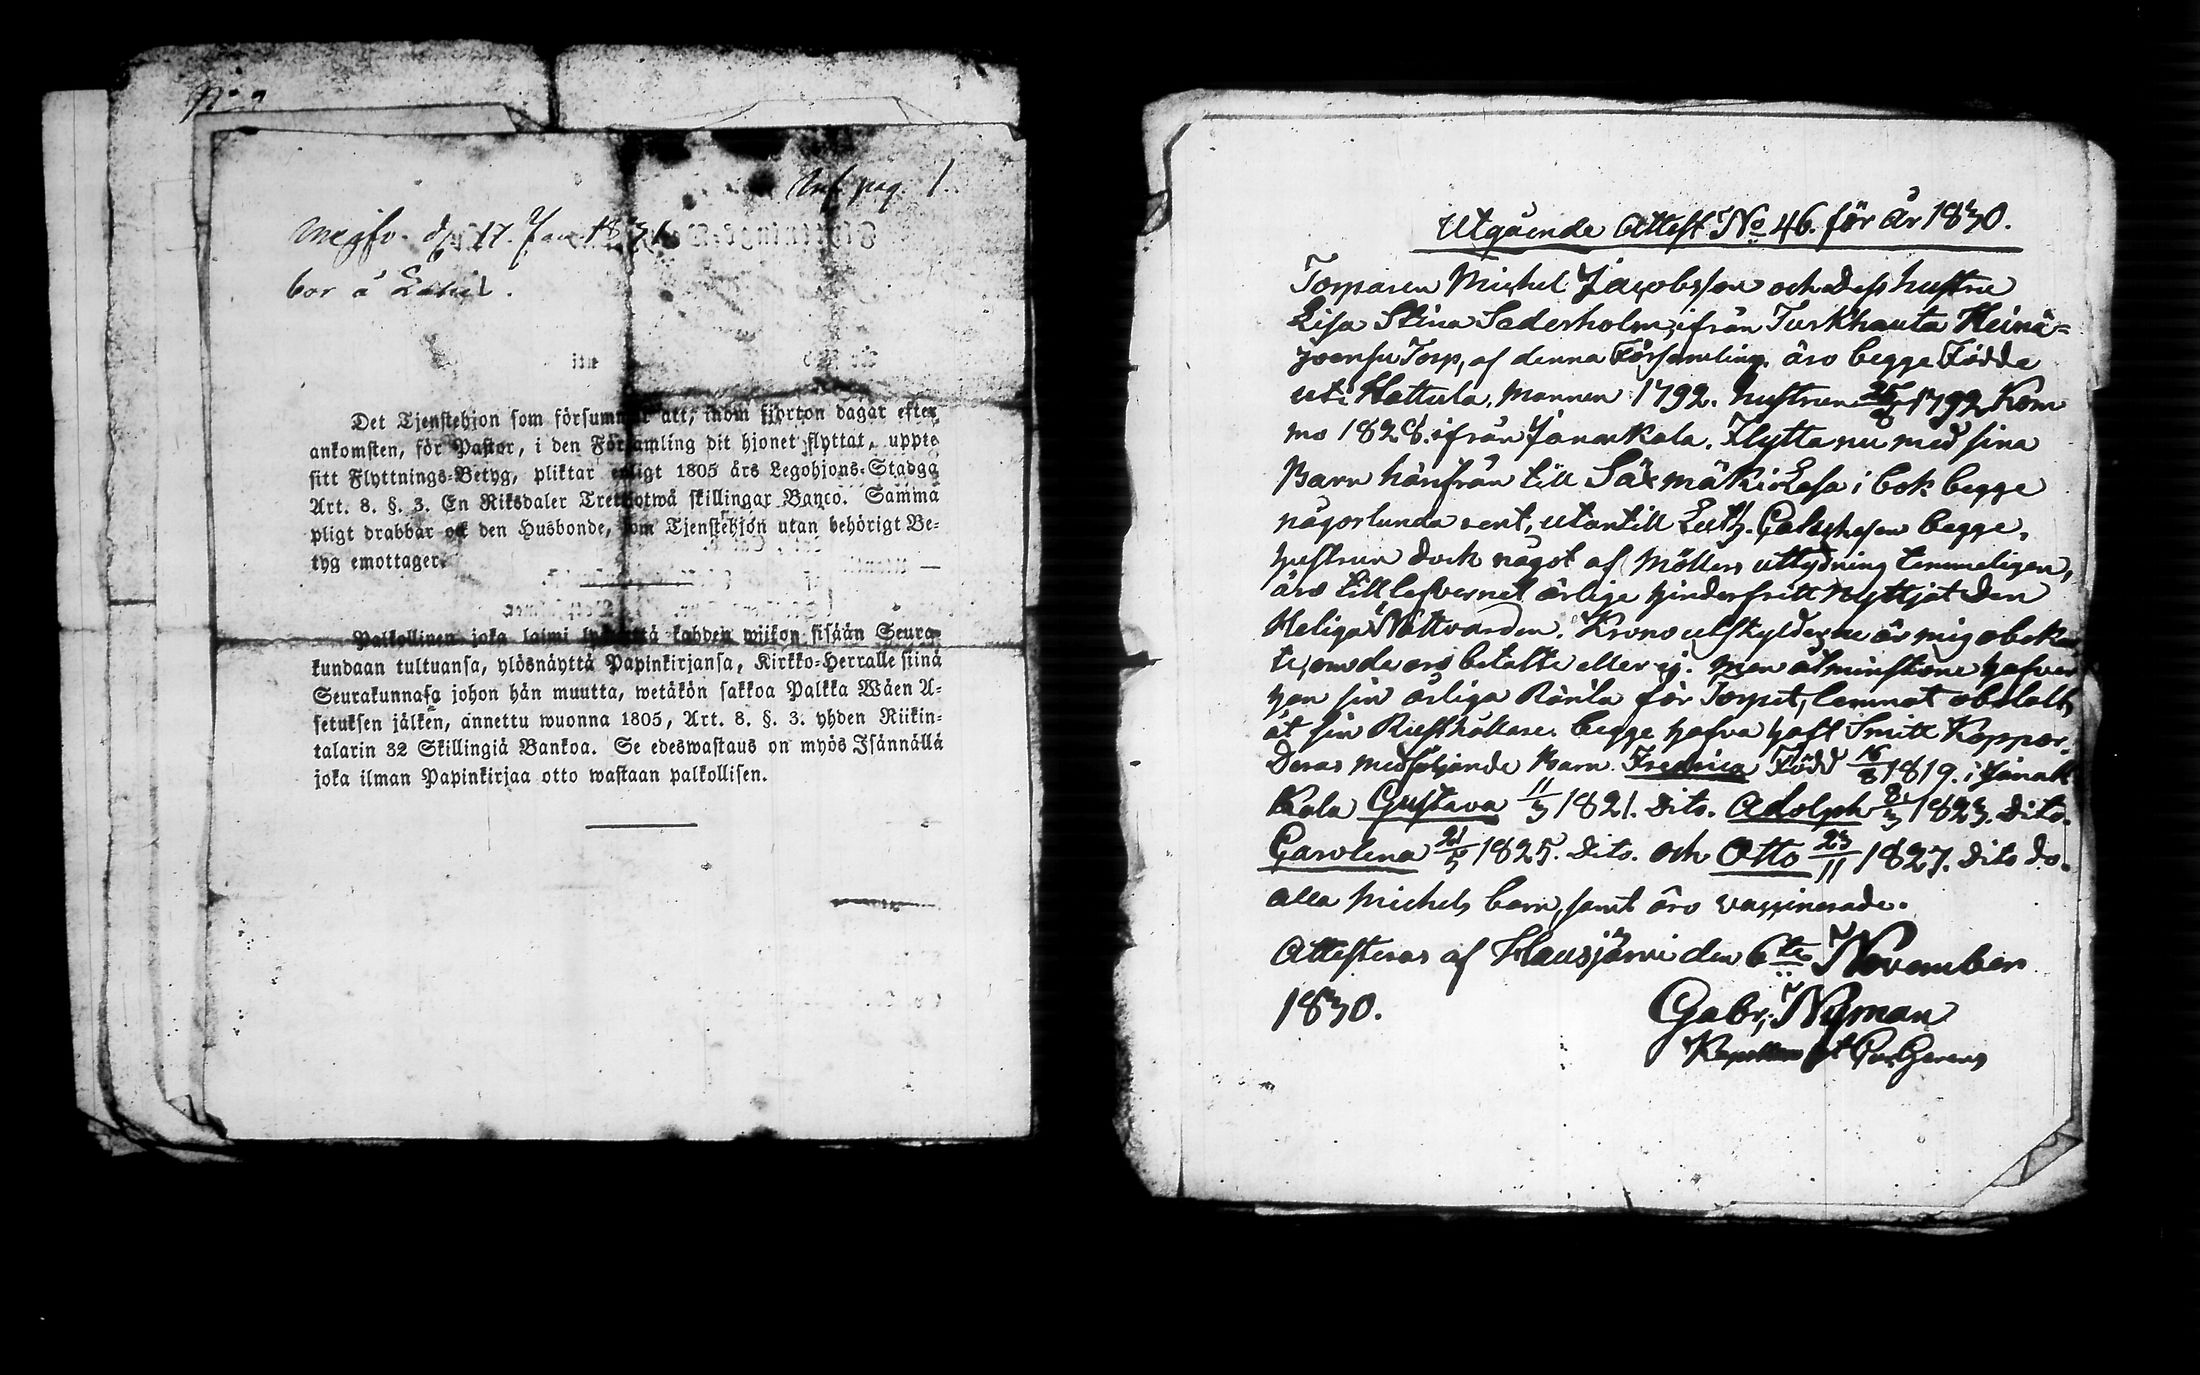 Inf. pag. 1.
d. 17. Jan 1831
bor å
Det Tjenstehjon som försummar att, inom fjorton dagar efter
ankomsten, för Pastor, i den Församling dit hjonet flyttat, uppte
sitt Flyttnings-Betyg, pliktar enligt 1805 års Legohjons-Stadga
Art. 8. §. 3. En Riksdaler Trettiotwå skillingar Banco. Samma
pligt drabbar ock den Husbonde, som Tjenstehjon utan behörigt Be-
tyg emottager.
Palkollinen joka laimi lyö että kahden wiikon sisään Seura-
kundaan tultuansa, ylösnäyttä Papinkirjansa, Kirkko-Herralle siinä
Seurakunnasa johon hän muutta, wetäkön sakkoa Palkka Wäen A-
setuksen jälken, annettu wuonna 1805, Art. 8. §. 3. yhden Riikin-
talarin 32 Skillingiä Bankoa. Se edeswastaus on myös Isännällä
joka ilman Papinkirjaa otto wastaan palkollisen.
Utgående Attest No 46. för år 1830.
Torparen Michel Jacobsson och dess hustru
Lisa Stina Saderholm, ifrån Turkhauta Heinä=
joensu Torp, af denna Församling äro begge Födde
uti Hattula, Mannen 1792. hustrun 1792 Kom
mo 1828. ifrån Janakkala. Flytta nu med sina
Barn härifrån till Säxmäki Läsa i bok begge
någorlunda rent, utantill Luth. Catechesen begge,
hustrun dock något af Möllers uttydning temmeligen,
äro till lefvernet ärlige hinderfritt Nyttjat den
Heliga Nattvarden. Krono utskylderne är mig obek
te, om de äro betalte eller ej. men åtminstone hafver
han sin årliga Ränta för Torpet, lemnat obetalt,
åt sin Rusthållare. begge hafva haft Smitt Koppor.
Deras medföljande Barn Fredrica Född 16/8 1819. i Janak
kala Gustava 11/3 1821. Dito. Adolph 8/3 1823. Dito.
Carolena 21/5 1825. Dito. och Otto 23/11 1827. Dito do.
alla Michels barn, samt äro vaccinerade.
Attesteras af Hausjärvi den 6te November
1830.
Gabr. Nyman